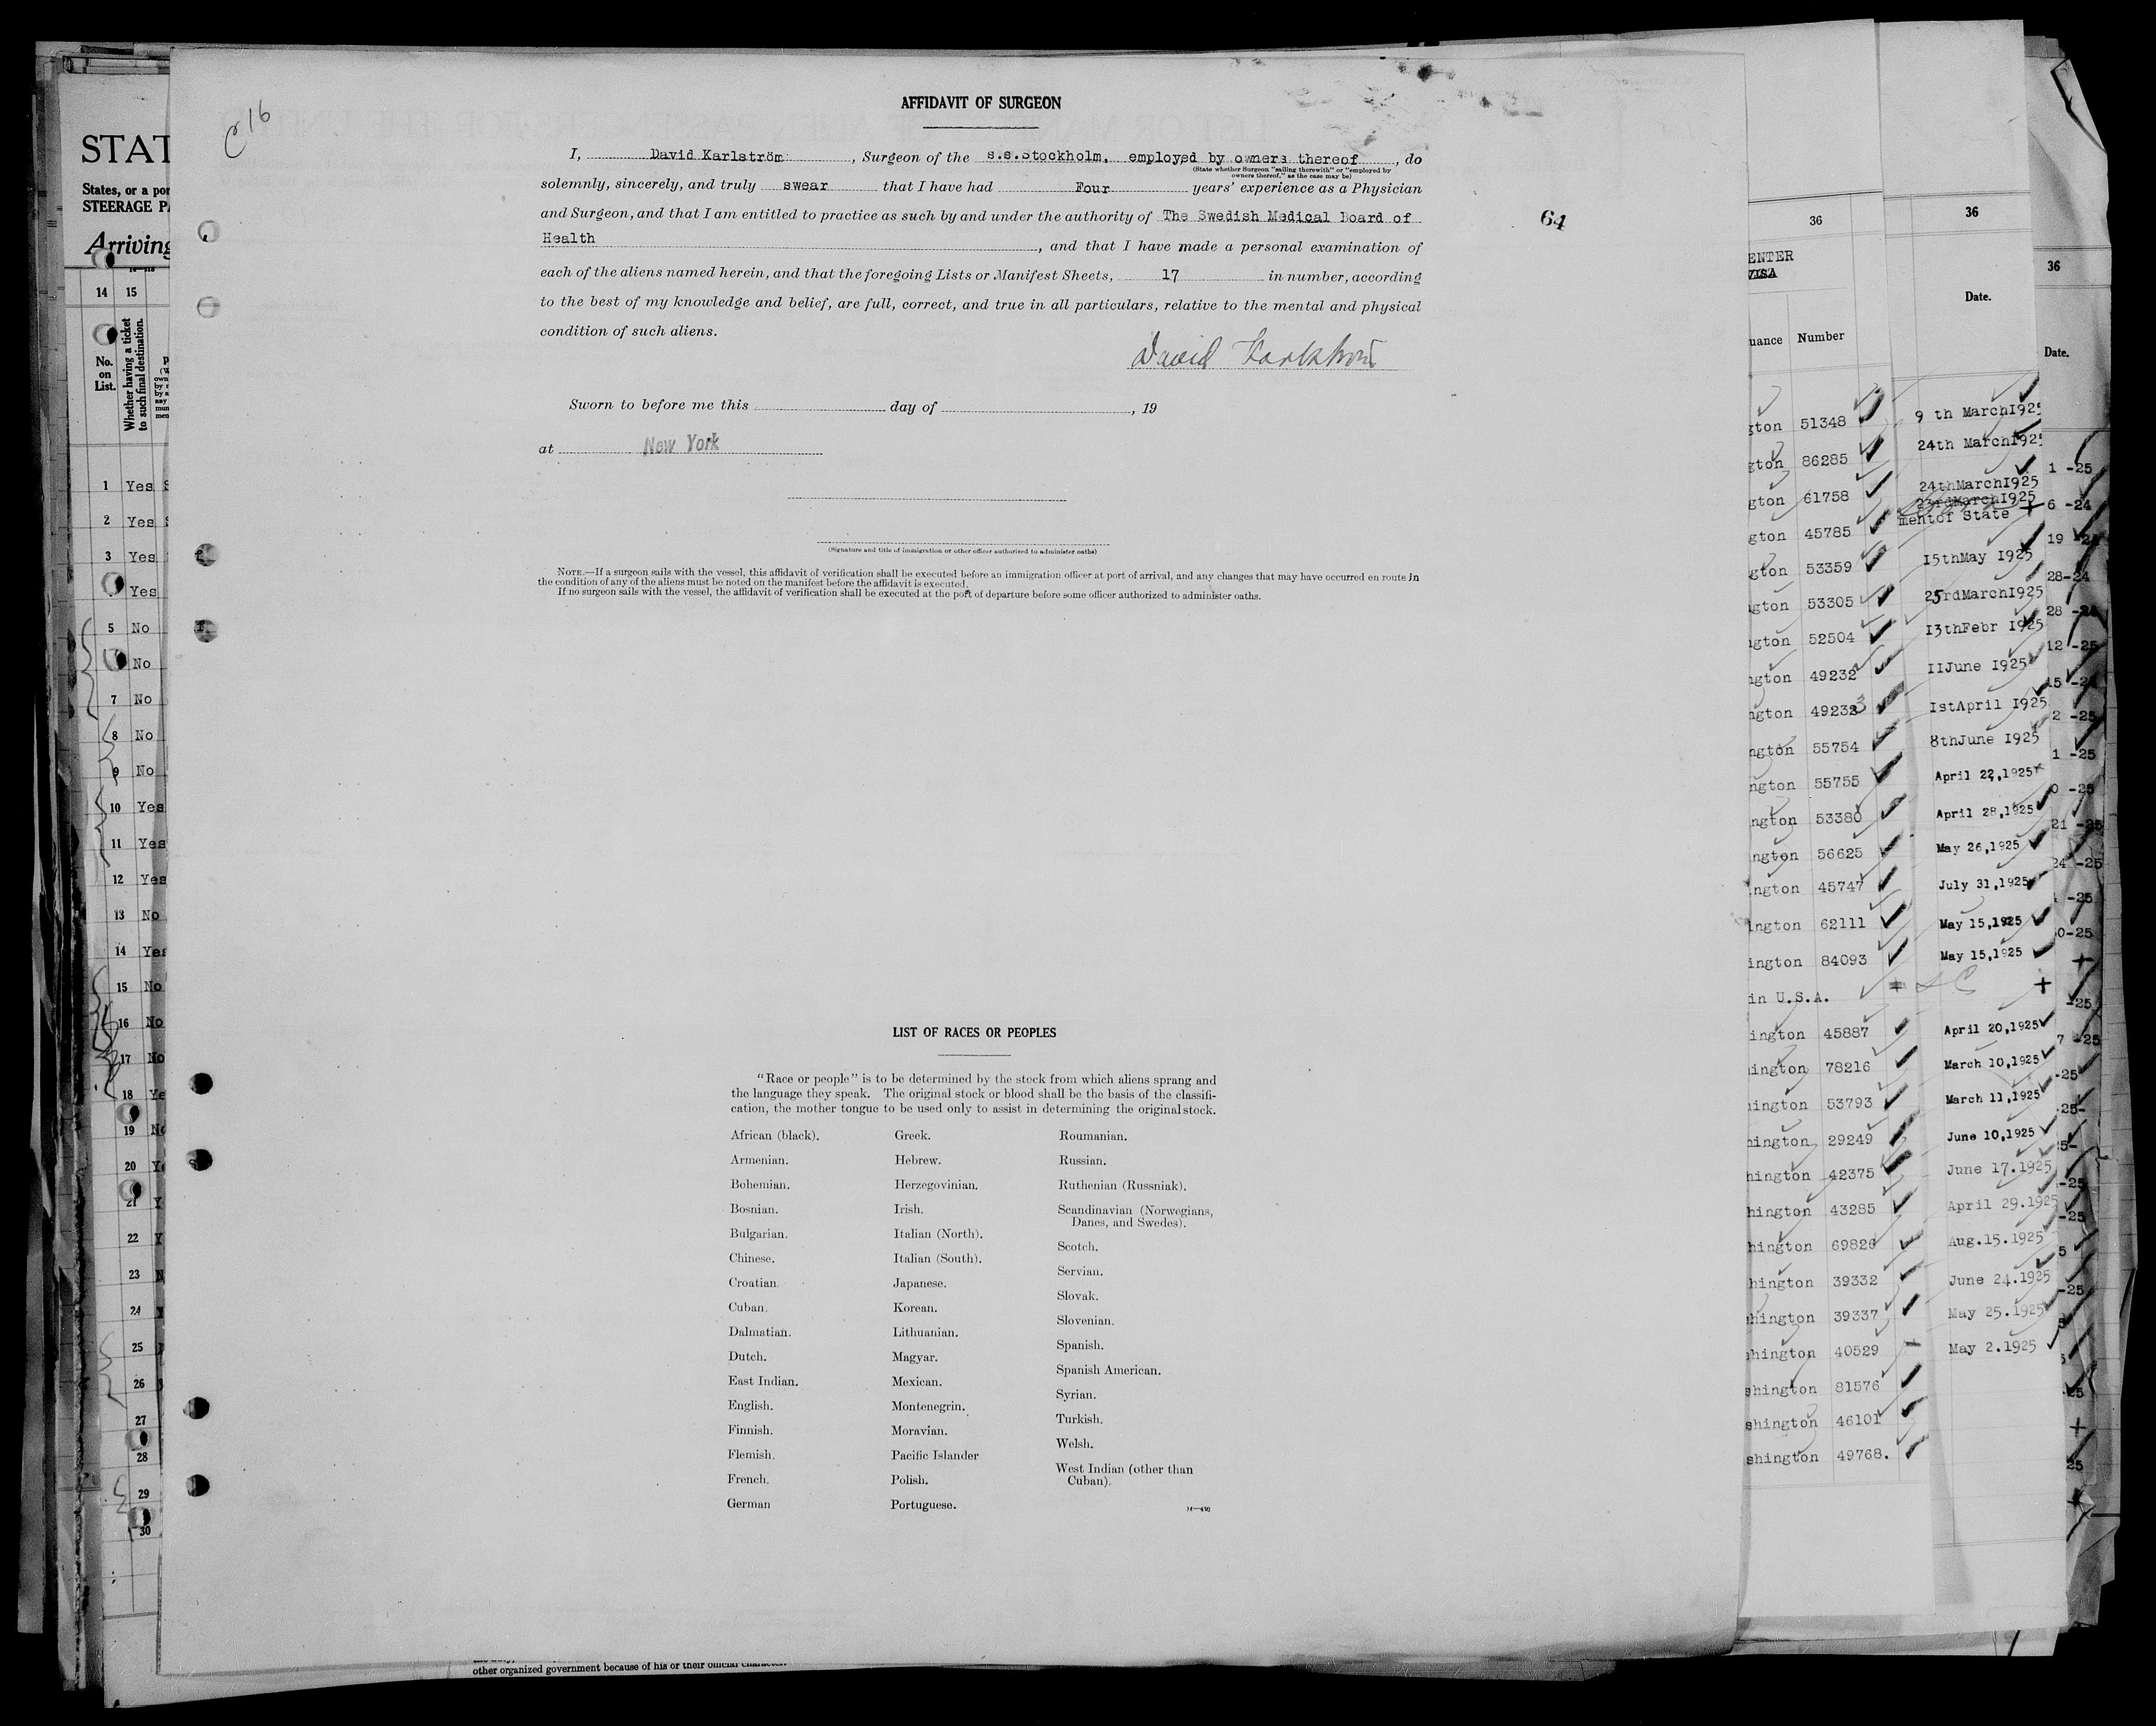 C 16
AFFIDAVIT OF SURGEON
I, David Karlström, Surgeon of the s.s.Stockholm, employed by owners thereof, do
(State whether Surgeon "sailing therewith" or "employed by
owners thereof," as the case may be)
solemnly, sincerely, and truly swear that I have had Four years' experience as a Physician
and Surgeon, and that I am entitled to practice as such by and under the authority of The Swedish Medical Board of
Health, and that I have made a personal examination of
each of the aliens named herein, and that the foregoing Lists or Manifest Sheets, 17 in number, according
to the best of my knowledge and belief, are full, correct, and true in all particulars, relative to the mental and physical
condition of such aliens.
David Karlström
Sworn to before me this day of , 19
at New York
(Signature and title of immigration or other officer authorized to administer oaths)
NOTE.—If a surgeon sails with the vessel, this affidavit of verification shall be executed before an immigration officer at port of arrival, and any changes that may have occurred en route in
the condition of any of the aliens must be noted on the manifest before the affidavit is executed.
If no surgeon sails with the vessel, the affidavit of verification shall be executed at the port of departure before some officer authorized to administer oaths.
64
LIST OF RACES OR PEOPLES
"Race or people" is to be determined by the stock from which aliens sprang and
the language they speak. The original stock or blood shall be the basis of the classifi-
cation, the mother tongue to be used only to assist in determining the original stock.
African (black).
Armenian.
Bohemian.
Bosnian.
Bulgarian.
Chinese.
Croatian.
Cuban.
Dalmatian.
Dutch.
East Indian.
English.
Finnish.
Flemish.
French.
German
Greek.
Hebrew.
Herzegovinian.
Irish.
Italian (North).
Italian (South).
Japanese.
Korean.
Lithuanian.
Magyar.
Mexican.
Montenegrin.
Moravian.
Pacific Islander
Polish.
Portuguese.
Roumanian.
Russian.
Ruthenian (Russniak).
Scandinavian (Norwegians,
Danes, and Swedes).
Scotch.
Servian.
Slovak.
Slovenian.
Spanish.
Spanish American.
Syrian.
Turkish.
Welsh.
West Indian (other than
Cuban).
STAT
States, or a por
STEERAGE PA
Arriving
14 15
No.
on
List.
Whether having a ticket
to such final destination.
1 Yes
2 Yes
3 Yes
Yes
5 No
No
7 No
8 No
9 No
10 Yes
11 Yes
12 Yes
13 No
14 Yes
15 No
16 No
17 No
18 Ye
19 No
20 Y
21 Y
22 Y
23 N
24
25
26
27
28
29
30
other organized government because of his or their official character.
36
ENTER
VISA
uance Number
gton 51348
gton 86285
gton 61758
gton 45785
gton 53359
ngton 53305
ngton 52504
ngton 49232
ngton 49233
ngton 55754
ngton 55755
ngton 53380
ington 56625
ington 45747
ington 62111
ington 84093
in U.S.A.
ington 45887
ington 78216
hington 53793
hington 29249
hington 42375
hington 43285
hington 69826
hington 39332
hington 39337
shington 40529
shington 81576
shington 46101
shington 49768.
36
Date.
9 th March1925
24th March1925
24thMarch1925
23rdMarch1925
mentof State
15thMay 1925
23rdMarch1925
13thFebr 1925
11June 1925
1stApril 1925
8thJune 1925
April 22,1925
April 28,1925
May 26,1925
July 31,1925
May 15,1925
May 15,1925
April 20,1925
March 10,1925
March 11,1925
June 10,1925
June 17.1925
April 29.1925
Aug.15.1925
June 24.1925
May 25.1925
May 2.1925
36
Date.
1 -25
6 -24
19 -24
28-24
28 -24
12 -25
15 -24
2 -25
1 -25
0 -25
21 -25
24 -25
-25
0-25
-25
7 -25
-25
-25-
5-
-25
-25
5
-25
5
25
25